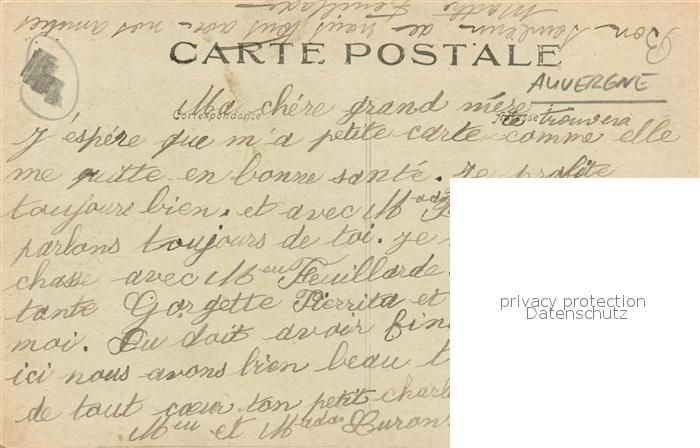 Bon souvenir de nous tous avec nos amitiés
Marthe Feuillarde
CARTE POSTALE
AUVERGNE
Correspondance
Adresse
Ma chére grand mére
J'éspére que m'a petite carte te trouvera comme elle
me quitte en bonne santé. Je profite
toujours bien. et avec M
parlons toujours de toi. je
chasse avec Meur Feuillarde
tante Gorgette Pierrita et
moi. Tu doit avoir fin
ici nous avons bien beau t
de tout cœur ton petit charl
Meur et Mada Luron
privacy protection
Datenschutz